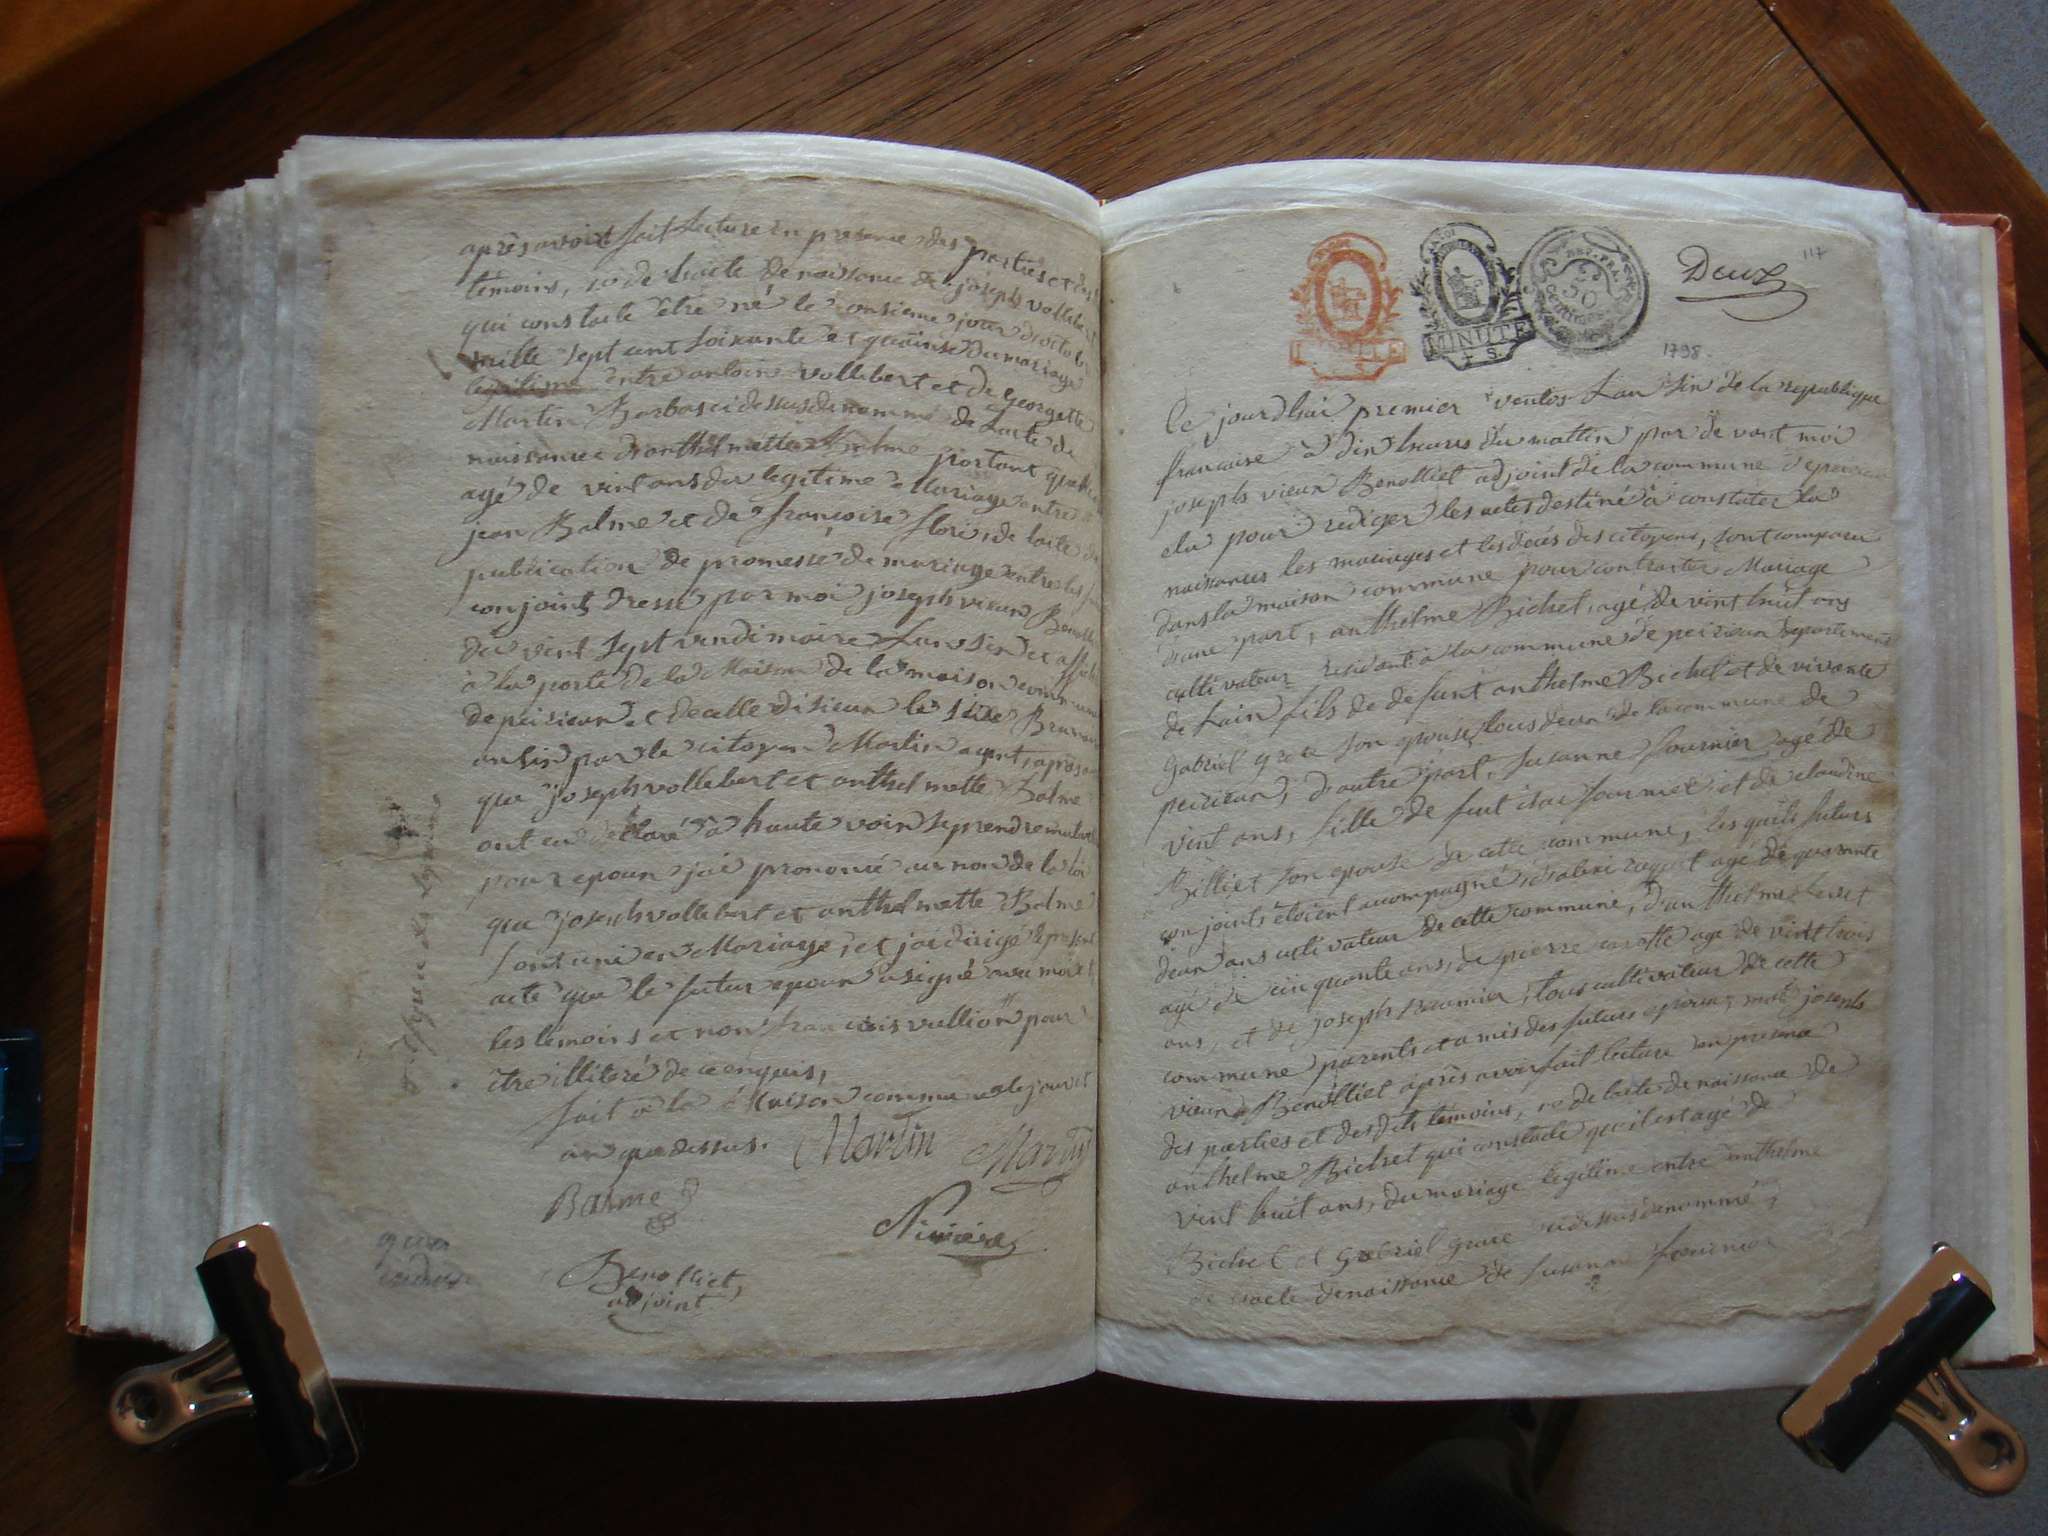 après avoir fait lecture en presence des parties et des
temoins, 1o de lacte de naissance de joseph vollebert
qui constacte être né le onsieme jour d'octobre
mille sept cent soixante et quainse du mariage
legitime entre antoine vollebert et de georgette
Martin Barbas ci dessus denommé de lacte de
naissance danthelmette Balme portant quelle
agé de vint ans du legitime Mariage entre
jean Balme et de françoise flori, de lacte de
publication de promesse de mariage entre les
conjoints dressé par moi joseph vieux Benolliet
du vint sept vendimaire lan six et affiché
à la porte de la Maison de la maison commune
de peizieux et de celle disieux le Brumaire
an six par le citoyen Martin agent, après
que joseph vollebert et anthelmette Balme
ont eu declaré à haute voix se prendre mutuel
pour epoux jai prononcé au nom de la loi
que joseph vollebert et anthelmette Balme
sont uni en Mariage, et jai dirigé le present
acte que le futur epoux a signé avec moi et
les temoins et non francois vullion pour
être illiteré de ce enquis,
fait à la Maison commune le jour et
an que dessus. Martin Martin
Barme
Riviere
Benolliet,
adjoint
117
Deux
MINUTE
MINUTE
T. S.
REP. FRA.
50
CENTIMES
1798
Ce jourdhui premier ventos lan six de la republique
francaise à dix heures du mattin par de vant moi
joseph vieux Benolliet adjoint de la commune de peizieux
elu pour rediger les actes destiné à constater la
naissances les mariages et les décés des citoyens, sont comparu
dans la maison commune pour contracter Mariage
d'une part, anthelme Bichet, agé de vint huit ans
cultivateur residant à la commune de peizieux departement
de lain fils de defunt anthelme Bichet et de vivante
Gabriel grace son epouse, tous deux de la commune de
peizieux, d'autre part, Susanne fournier agé de
vint ans, fille de feut fournier et de claudine
Billiet son epouse de cette commune, les quels futurs
conjoints étoient accompagné agé de quarante
deux ans cultivateur de cette commune, d'anthelme
agé de cinquante ans, de pierre age de vint trois
ans, et de joseph tous cultivateur de cette
commune parents et amis des futurs epoux, moi joseph
vieux Benolliet après avoir fait lecture en presence
des parties et des dits temoins, 1o de lacte de naissance de
anthelme Bichet qui constacte qu'il est agé de
vint huit ans, du mariage legitime entre anthelme
Bichet et Gabriel grace ci dessus denommé,
de lacte de naissance de Susanne fournier